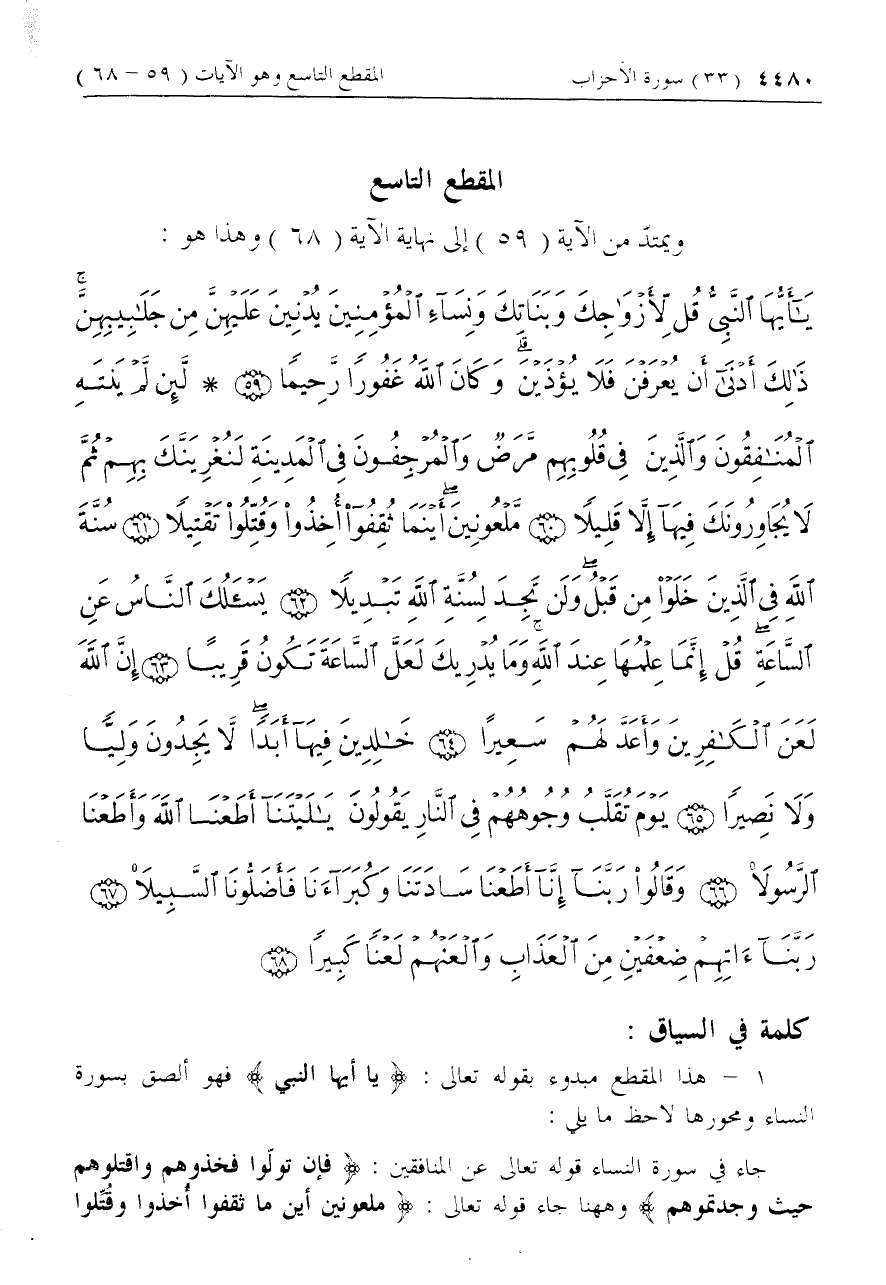 ٤٤٨٠ (٣٣) سورة الأحزاب المقطع التاسع وهو الآيات (٥٩ – ٦٨)
المقطع التاسع
ويمتدّ من الآية (٥٩) إلى نهاية الآية (٦٨) وهذا هو :
يَـٰٓأَيُّهَا ٱلنَّبِىُّ قُل لِّأَزْوَٰجِكَ وَبَنَاتِكَ وَنِسَآءِ ٱلْمُؤْمِنِينَ يُدْنِينَ عَلَيْهِنَّ مِن جَلَـٰبِيبِهِنَّ ۚ
ذَٰلِكَ أَدْنَىٰٓ أَن يُعْرَفْنَ فَلَا يُؤْذَيْنَ ۗ وَكَانَ ٱللَّهُ غَفُورًا رَّحِيمًا ٥٩ * لَّئِن لَّمْ يَنتَهِ
ٱلْمُنَـٰفِقُونَ وَٱلَّذِينَ فِى قُلُوبِهِم مَّرَضٌ وَٱلْمُرْجِفُونَ فِى ٱلْمَدِينَةِ لَنُغْرِيَنَّكَ بِهِمْ ثُمَّ
لَا يُجَاوِرُونَكَ فِيهَآ إِلَّا قَلِيلًا ٦٠ مَّلْعُونِينَ ۖ أَيْنَمَا ثُقِفُوٓا۟ أُخِذُوا۟ وَقُتِّلُوا۟ تَقْتِيلًا ٦١ سُنَّةَ
ٱللَّهِ فِى ٱلَّذِينَ خَلَوْا۟ مِن قَبْلُ ۖ وَلَن تَجِدَ لِسُنَّةِ ٱللَّهِ تَبْدِيلًا ٦٢ يَسْـَٔلُكَ ٱلنَّاسُ عَنِ
ٱلسَّاعَةِ ۖ قُلْ إِنَّمَا عِلْمُهَا عِندَ ٱللَّهِ ۚ وَمَا يُدْرِيكَ لَعَلَّ ٱلسَّاعَةَ تَكُونُ قَرِيبًا ٦٣ إِنَّ ٱللَّهَ
لَعَنَ ٱلْكَـٰفِرِينَ وَأَعَدَّ لَهُمْ سَعِيرًا ٦٤ خَـٰلِدِينَ فِيهَآ أَبَدًا ۖ لَّا يَجِدُونَ وَلِيًّا
وَلَا نَصِيرًا ٦٥ يَوْمَ تُقَلَّبُ وُجُوهُهُمْ فِى ٱلنَّارِ يَقُولُونَ يَـٰلَيْتَنَآ أَطَعْنَا ٱللَّهَ وَأَطَعْنَا
ٱلرَّسُولَا۠ ٦٦ وَقَالُوا۟ رَبَّنَآ إِنَّآ أَطَعْنَا سَادَتَنَا وَكُبَرَآءَنَا فَأَضَلُّونَا ٱلسَّبِيلَا۠ ٦٧
رَبَّنَآ ءَاتِهِمْ ضِعْفَيْنِ مِنَ ٱلْعَذَابِ وَٱلْعَنْهُمْ لَعْنًا كَبِيرًا ٦٨
كلمة في السياق :
١ – هذا المقطع مبدوء بقوله تعالى : ﴿ يا أيها النبي ﴾ فهو ألصق بسورة
النساء ومحورها لاحظ ما يلي :
جاء في سورة النساء قوله تعالى عن المنافقين : ﴿ فإن تولّوا فخذوهم واقتلوهم
حيث وجدتموهم ﴾ وههنا جاء قوله تعالى : ﴿ ملعونين أين ما ثقفوا أُخذوا وقُتِّلوا